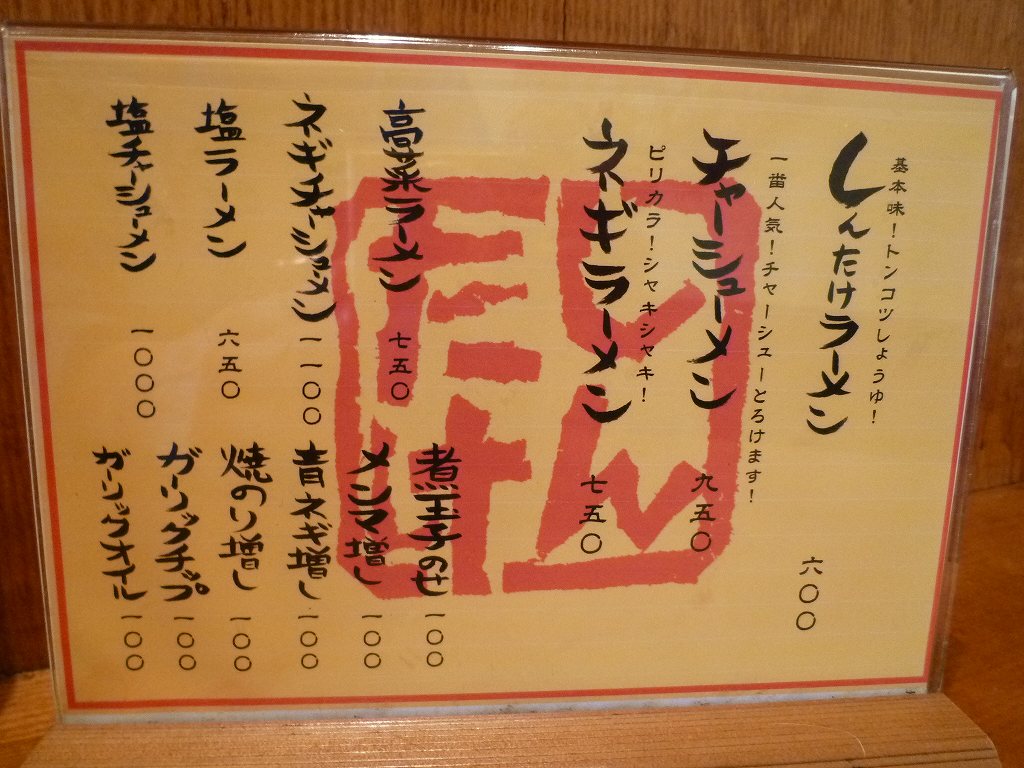 基本味！トンコツしょうゆ！
しんたけラーメン 六〇〇
一番人気！チャーシューとろけます！
チャーシューメン 九五〇
ピリカラ！シャキシャキ！
ネギラーメン 七五〇
高菜ラーメン 七五〇
ネギチャーシューメン 一一〇〇
塩ラーメン 六五〇
塩チャーシューメン 一〇〇〇
煮玉子のせ 一〇〇
メンマ増し 一〇〇
青ネギ増し 一〇〇
焼のり増し 一〇〇
ガーリックチップ 一〇〇
ガーリックオイル 一〇〇
しんたけ